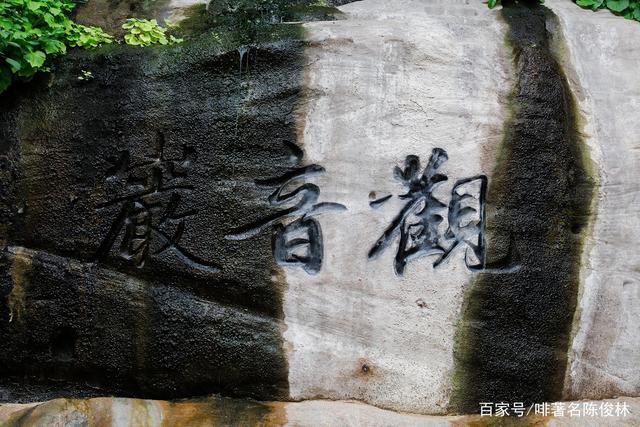 觀音巖
百家号/啡著名陈俊林